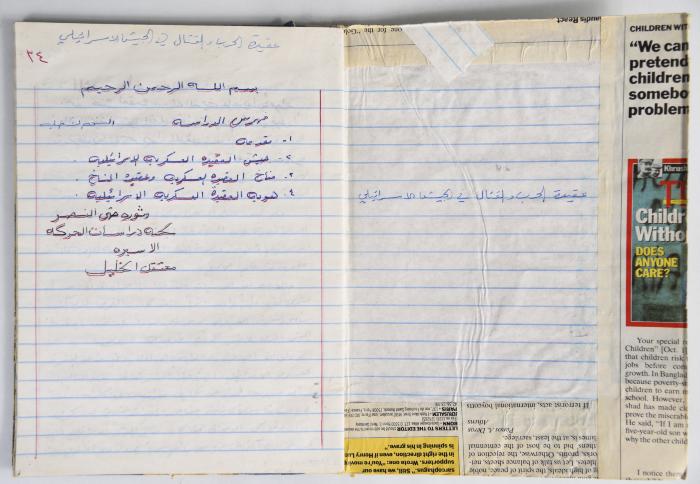 ٣٤
عقيدة الحرب والقتال في الجيش الاسرائيلي
بسم الله الرحمن الرحيم
فهرس الدراسة
١- مقدمة
٢- العقيدة العسكرية الاسرائيلية .
٣- مناخ العقيدة العسكرية وعقيدة المناخ .
٤- هوية العقيدة العسكرية الاسرائيلية .
وثورة حتى النصر
لجنة دراسات الحركة
الاسيرة
معتقل الخليل
عقيدة الحرب والقتال في الجيش الاسرائيلي
one for the "Gol
audis React
If terrorist acts, international boycotts
Athens
LETTERS TO THE EDITOR
BONN
JERUSALEM
PARIS
is spinning in his grave."
in the right direction, even if Henry Lu
supporters. Wrote one: "You're moving
sarcophagus." Still, we have our
CHILDREN WIT
"We can
pretend
children
somebo
problem
Khrush
Childr
Witho
DOES
ANYONE
CARE?
Your special r
Children" [Oct. 1
that children risk
jobs before com
growth. In Banglad
because poverty-st
children to earn m
school. However,
shad has made cle
prove the miserabl
He said, "If I am
five-year-old son w
why the other child
I notice there